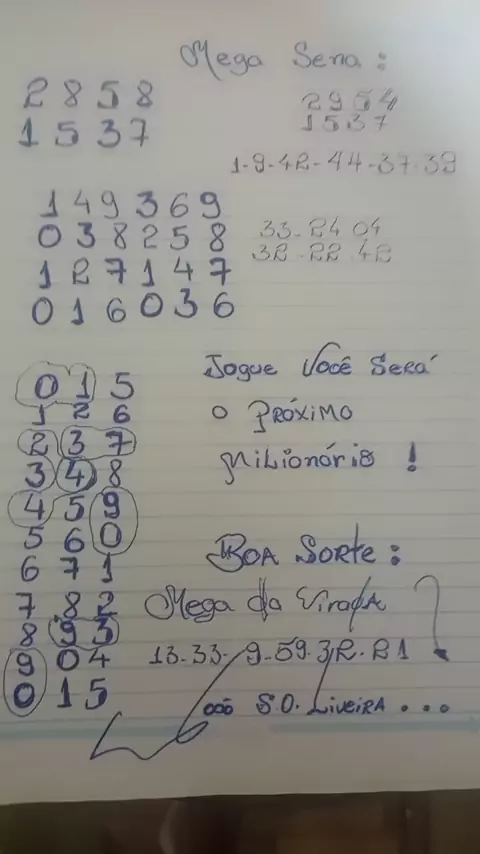 Mega Sena:
2 8 5 8
1 5 3 7
2954
1537
1-9-42-44-37-39
1 4 9 3 6 9
0 3 8 2 5 8
1 2 7 1 4 7
0 1 6 0 3 6
33-24 04
32-22-42
Jogue Você Será
o Próximo
Milionário !
0 1 5
1 2 6
2 3 7
3 4 8
4 5 9
5 6 0
6 7 1
7 8 2
8 9 3
9 0 4
0 1 5
BOA SORTE:
Mega da Virada
13-33-9-59-32-21
S.O. LiVEiRA...